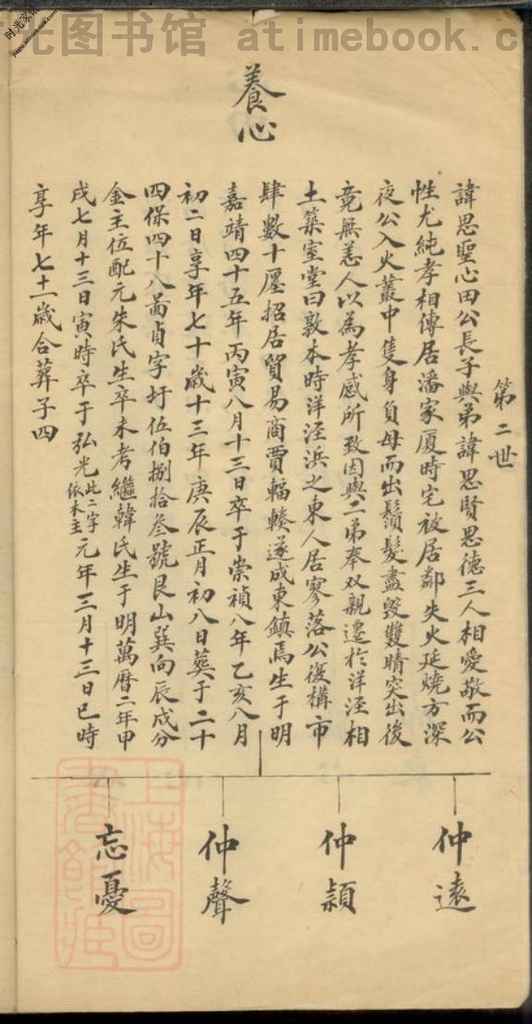 光图书馆 atimebook.c
養心
第二世
諱思聖心田公長子與弟諱思賢思德三人相愛敬而公
性尤純孝相傳居潘家厦時宅被居鄰失火延燒方深
夜公入火叢中隻身負母而出鬚髮盡毀雙睛突出後
竟無恙人以為孝感所致因與二弟奉双親遷於洋涇相
土築室堂曰敦本時洋涇浜之東人居寥落公復構市
肆數十廛招居貿易商賈輻輳遂成東鎮焉生于明
嘉靖四十五年丙寅八月十三日卒于崇禎八年乙亥八月
初二日享年七十歲十三年庚辰正月初八日葬于二十
四保四十八啚貞字圩伍伯捌拾叁號艮山巽向辰戌分
金主位配元朱氏生卒未考繼韓氏生于明萬曆二年甲
戌七月十三日寅時卒于弘光此二字依木主元年三月十三日巳時
享年七十二歲合葬子四
仲遠
仲頴
仲聲
忘憂
上海圖書館藏